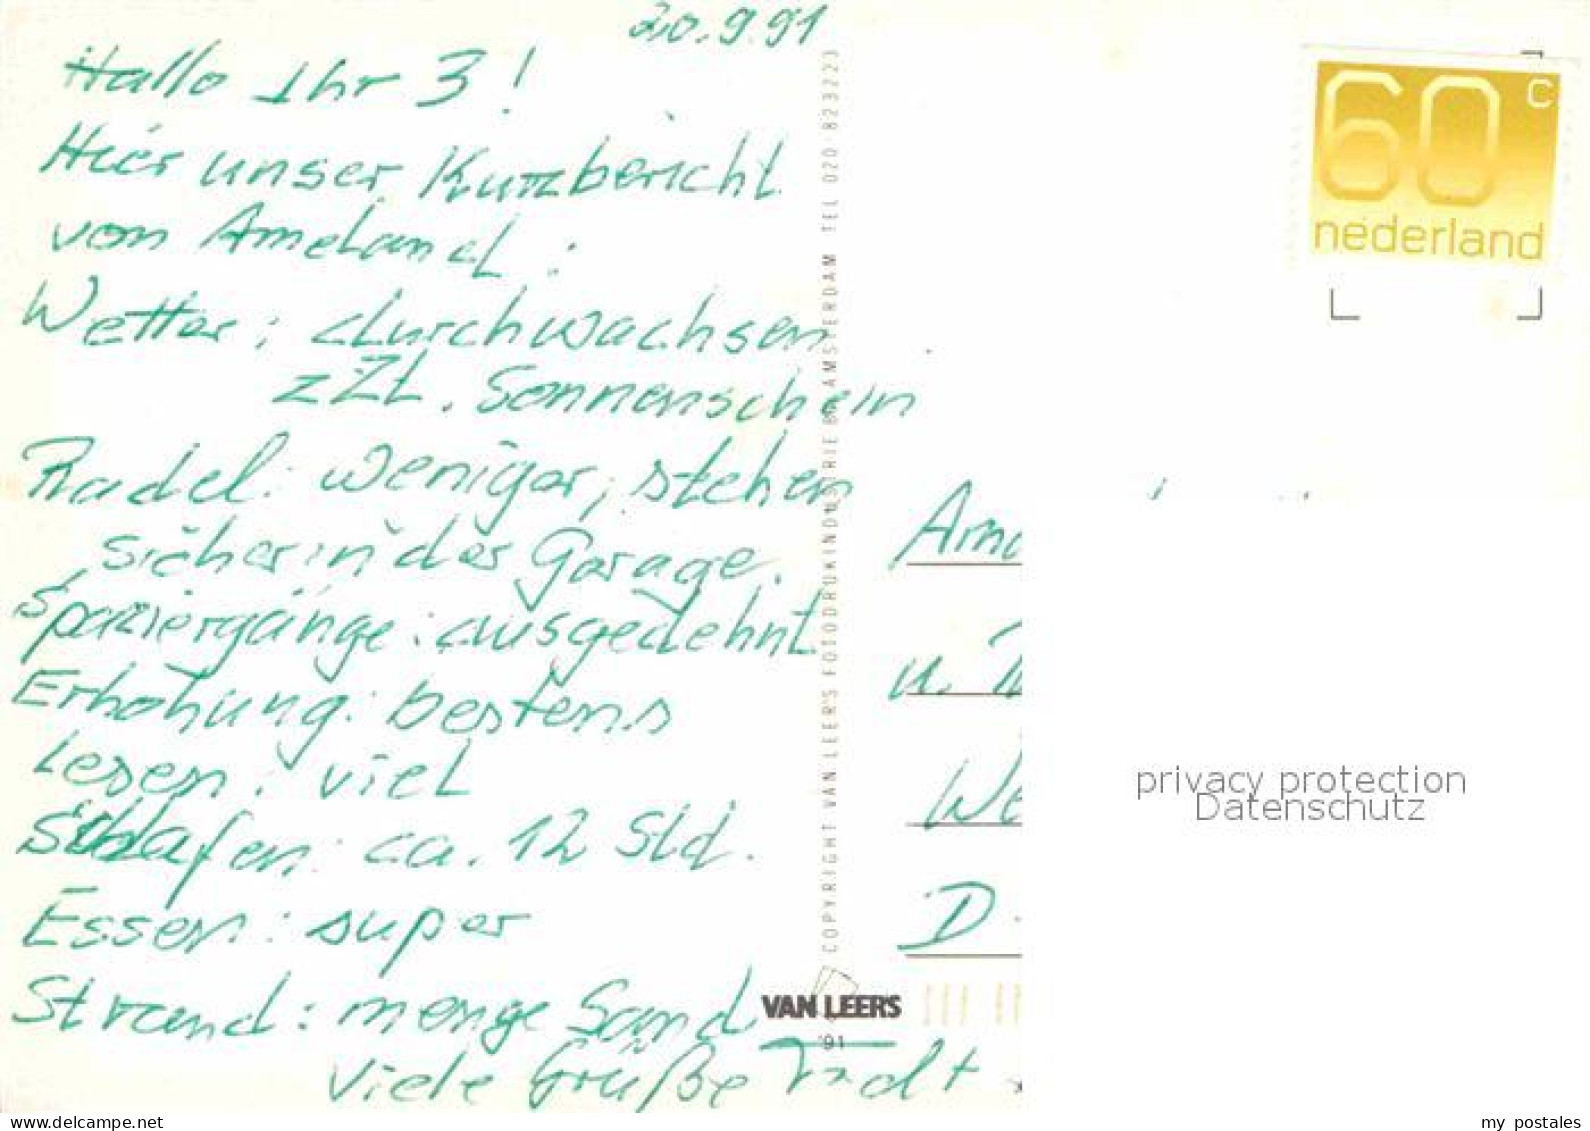 20.9.91
Hallo Ihr 3!
Hier unser Kurzbericht
vom Ameland:
Wetter: durchwachsen
zZt. Sonnenschein
Radel: weniger, stehen
sicher in der Garage.
Spaziergänge: ausgedehnt
Erhohung: bestens
Lesen: viel
Schlafen: ca. 12 Std.
Essen: super
Strand: menge Sand
viele Grüße
COPYRIGHT VAN LEER'S FOTODRUKINDUSTRIE BV AMSTERDAM TEL 020 823223
VAN LEER'S
'91
60 c
nederland
u.
We
D.
privacy protection
Datenschutz
delcampe.net
my postales